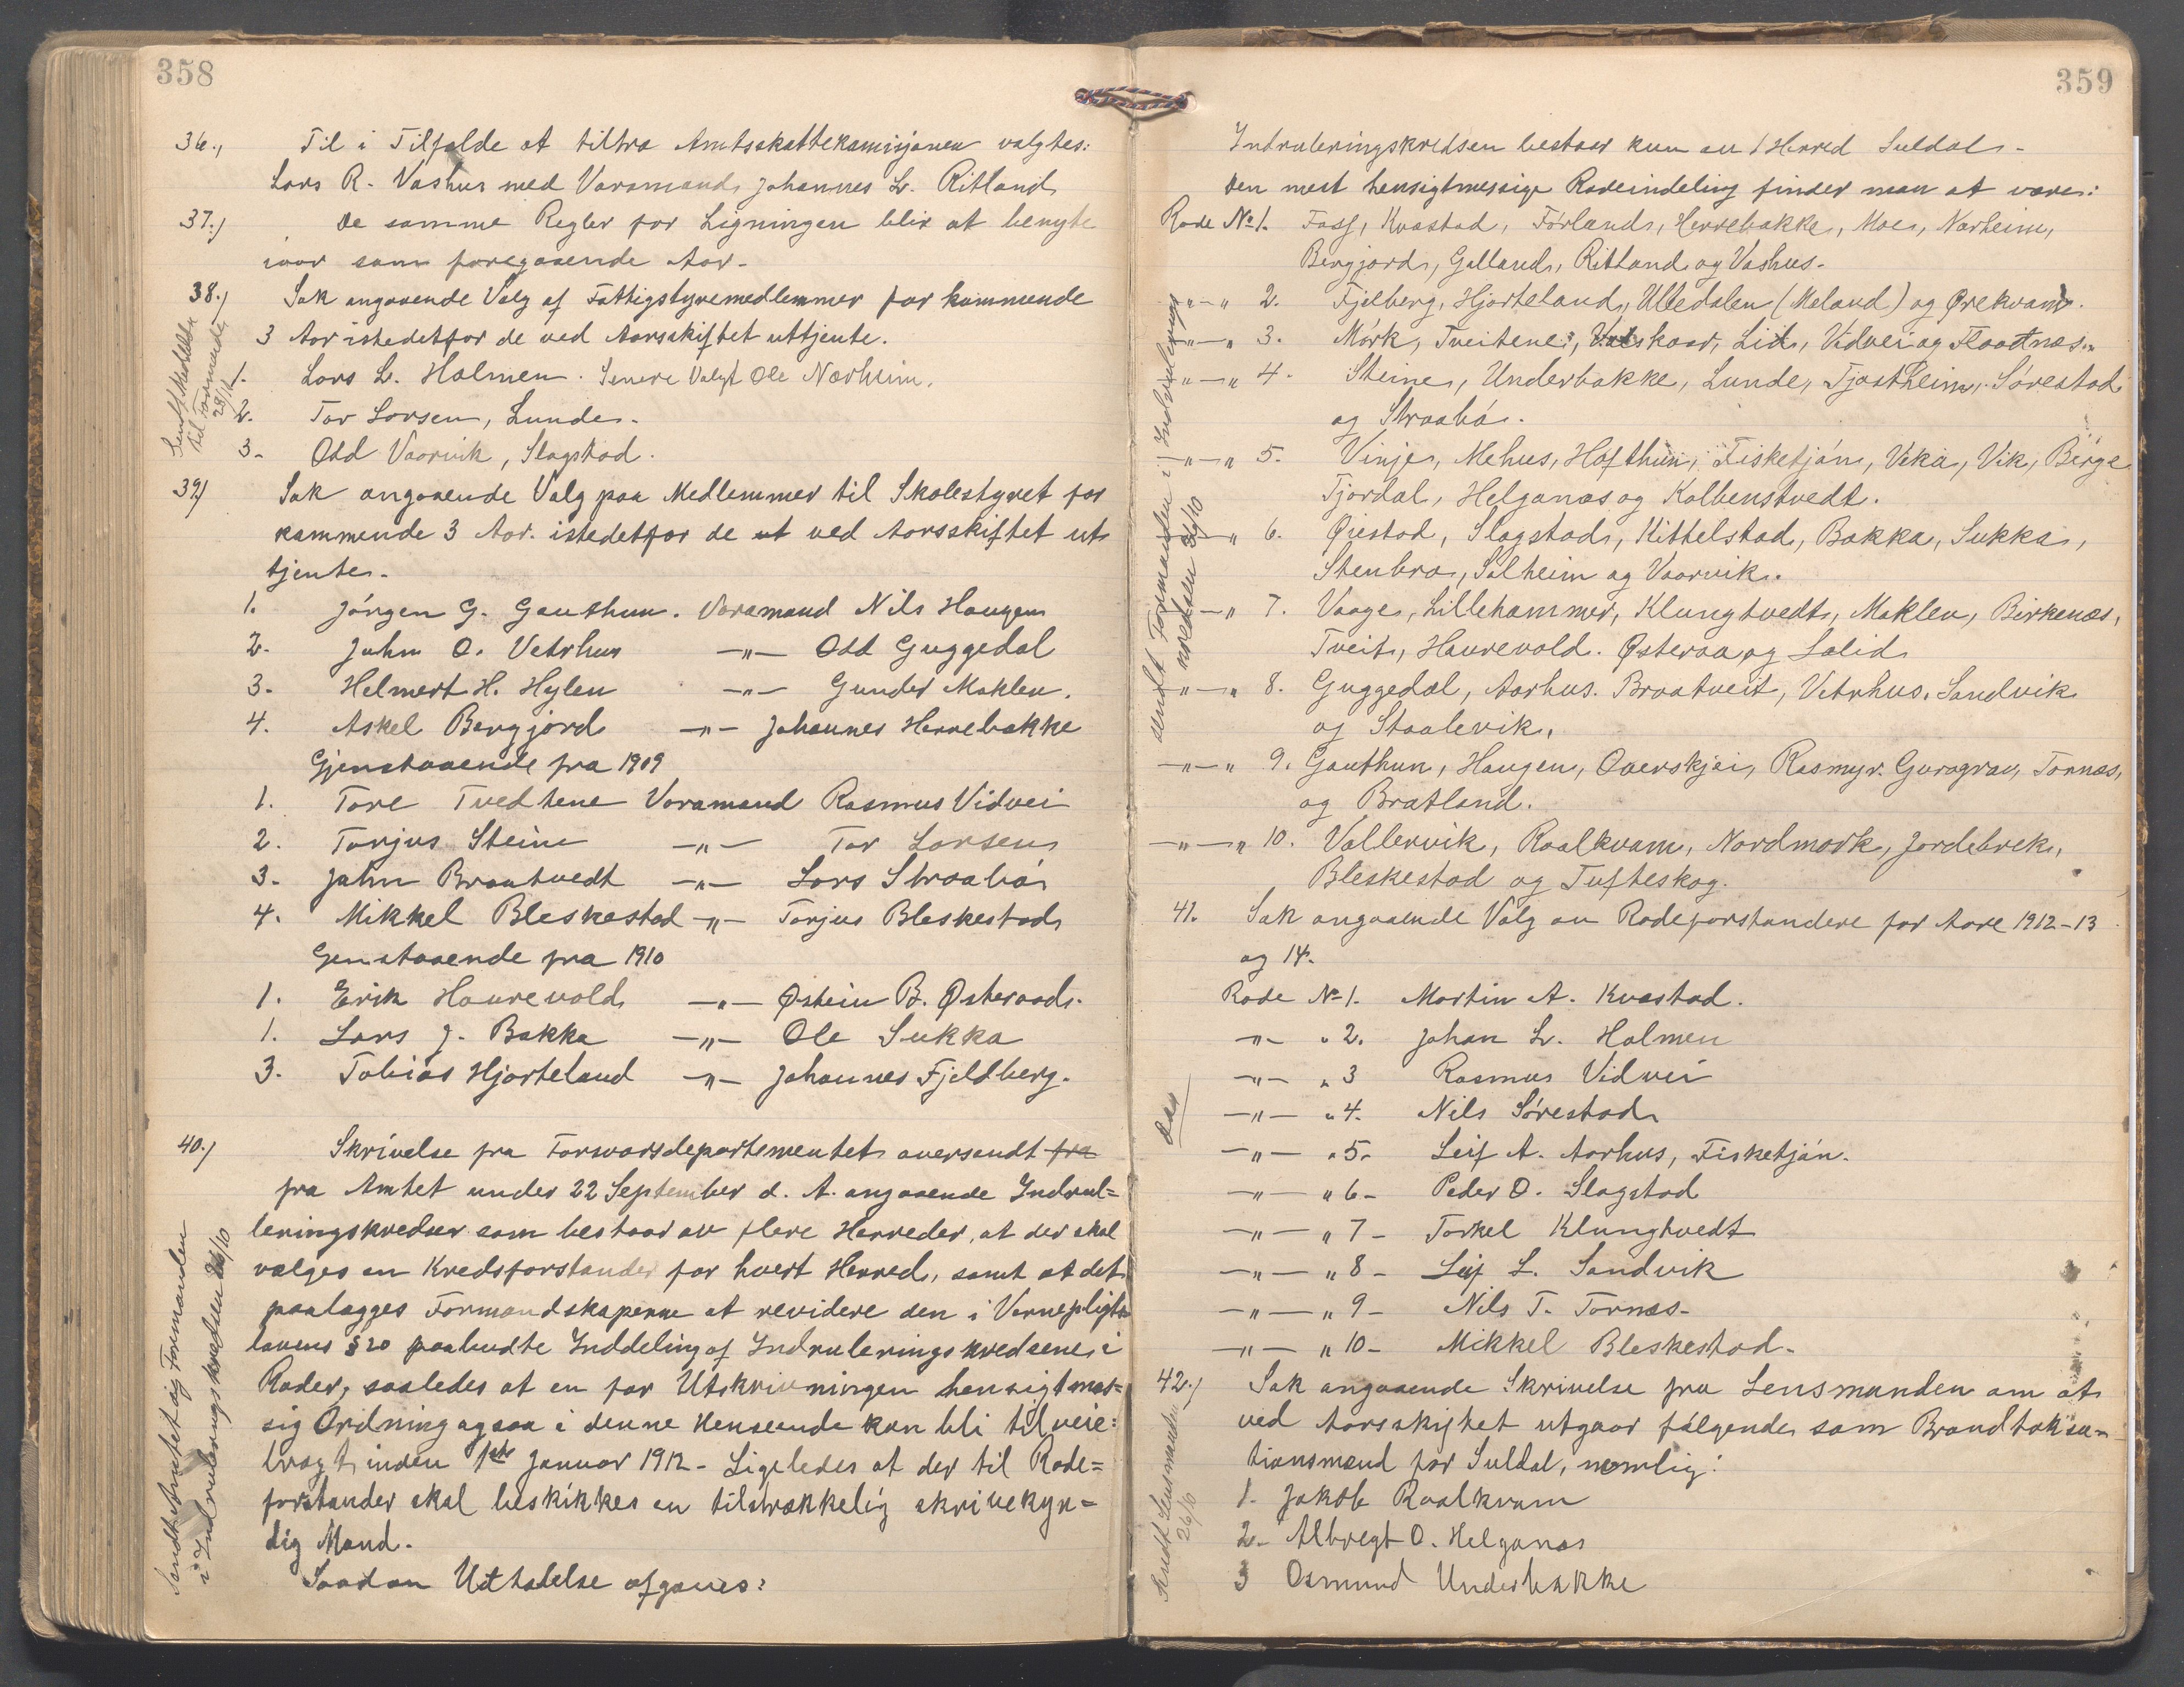 358
36., Til i Tilfelde at tiltra Amtsskattekomisjonen valgtes:
Lars R. Vashus med Varamand, Johannes L. Ritland
37.) De samme Regler for Ligningen blir at benyte
iaar som foregaaende Aar.
38.) Sak angaaende Valg af Fattigstyremedlemmer for kommende
3 Aar istedetfor de ved Aarsskiftet uttjente.
1. Lars L. Holmen. Senere Valgt Ole Nærheim.
2. Tor Larsen, Lunde.
3. Odd Vaarvik, Slagstad.
til Formand
28/10
39) Sak angaaende Valg paa Medlemmer til Skolestyret for
kommende 3 Aar. istedetfor de ut ved Aarsskiftet ut
tjente.
1. Jórgen G. Gauthun. Varamand Nils Haugen
2. John O. Vetrhus —"— Odd Guggedal
3. Helmert H. Hylen —"— Gunder Moklev.
4. Askel Bergjord —"— Johannes Herrebakke
Gjenstaaende fra 1909
1. Tore Tvedtene Varamand Rasmus Vidvei
2. Torjus Steine —"— Tor Larsen
3. John Braatvedt —"— Lars Straabó
4. Mikkel Bleskestad —"— Torjus Bleskestad
Genstaaende fra 1910
1. Erik Havrevold —"— Østein B. Østeraads.
1. Lars J. Bakka —"— Ole Sukka
3. Tobias Hjorteland —"— Johannes Fjeldberg.
40.) Skrivelse fra Forsvarsdepartementet oversendt fra
fra Amtet under 22 September d. A. angaaende Indrul=
leringskredser som bestaar av flere Herreder, at der skal
vælges en Kredsforstander for hvert Herred, samt at det
paalægges Formandskaperne at revidere den i Vernepligts
lovens § 20 paabudte Inddeling af Indruleringskredsene i
Roder, saaledes at en for Utskrivningen hensigtmæs=
sig Ordning ogsaa i denne Henseende kan bli tilveie:
bragt, inden 1ste Januar 1912. Ligeledes at der til Rode=
forstander skal beskikkes en tilstrækkelig skrivekyn=
dig Mand.
Saadan Uttalelse afgaves:
Sendt Amtet og Formanden
i Indruleringskredsen 26/10
359
Indruleringskredsen bestaar kun av 1 Herred Suldal.
Den mest hensigtmessige Rodeindeling finder man at være:
Rode No 1. Foss, Kvæstad, Fórland, Herrebakke, Moe, Nærheim,
Bergjord, Galland, Ritland og Vashus.
—"—" 2. Fjelberg, Hjorteland, Ulledalen (Meland) og Ørekvam.
—"—" 3. Mórk, Tveitene, Vatskaar, Lid, Vidvei og Flaatnæs.
—"—" 4. Steine, Underbakke, Lunde, Tjøstheim, Sórestad
og Straabó.
—"—" 5. Vinje, Mehus, Hofthun, Fisketjón, Veka, Vik, Bérge
Tjordal, Helganæs og Kolbenstvedt.
—"—" 6. Øiestad, Slagstad, Kittelstad, Bakka, Sukka,
Stenbro, Solheim og Vaarvik.
—"—" 7. Vaage, Lillehammer, Klungtvedt, Moklev, Birkenæs,
Tveit, Havrevold. Østeraa og Lalid.
—"—" 8. Guggedal, Aarhus. Braatveit, Vetrhus, Sandvik
og Staalevik.
—"—" 9. Gauthun, Haugen, Overskjei, Rasmyr. Gurograv, Tornæs,
og Bratland.
—"—" 10. Vallervik, Roalkvam, Nordmork, Jordebrek,
Bleskestad og Tufteskog.
sendt Formanden i Indrulerings
kredsen 26/10
41. Sak angaaende Valg av Rodeforstandere for Aare 1912-13
og 14.
Rode No 1. Martin A. Kvæstad.
—"— " 2. Johan L. Holmen
—"— " 3 Rasmus Vidvei
—"— " 4. Nils Sórestad
—"— " 5. Leif A. Aarhus, Fisketjón.
—"— " 6 - Peder O. Slagstad
—"— " 7 - Torkel Klungtvedt
—"— " 8 - Leif L. Sandvik
—"— " 9 - Nils T. Tornæs.
—"— " 10 - Mikkel Bleskestad.
42.) Sak angaaende Skrivelse fra Lensmanden om at
ved Aarsskiftet utgaar fólgende som Brandtaksa-
tionsmænd for Suldal, nemlig:
1. Jakob Roalkvam
2. Albregt O. Helganæs
3 Osmund Underbakke
Sendt Lensmanden
26/10